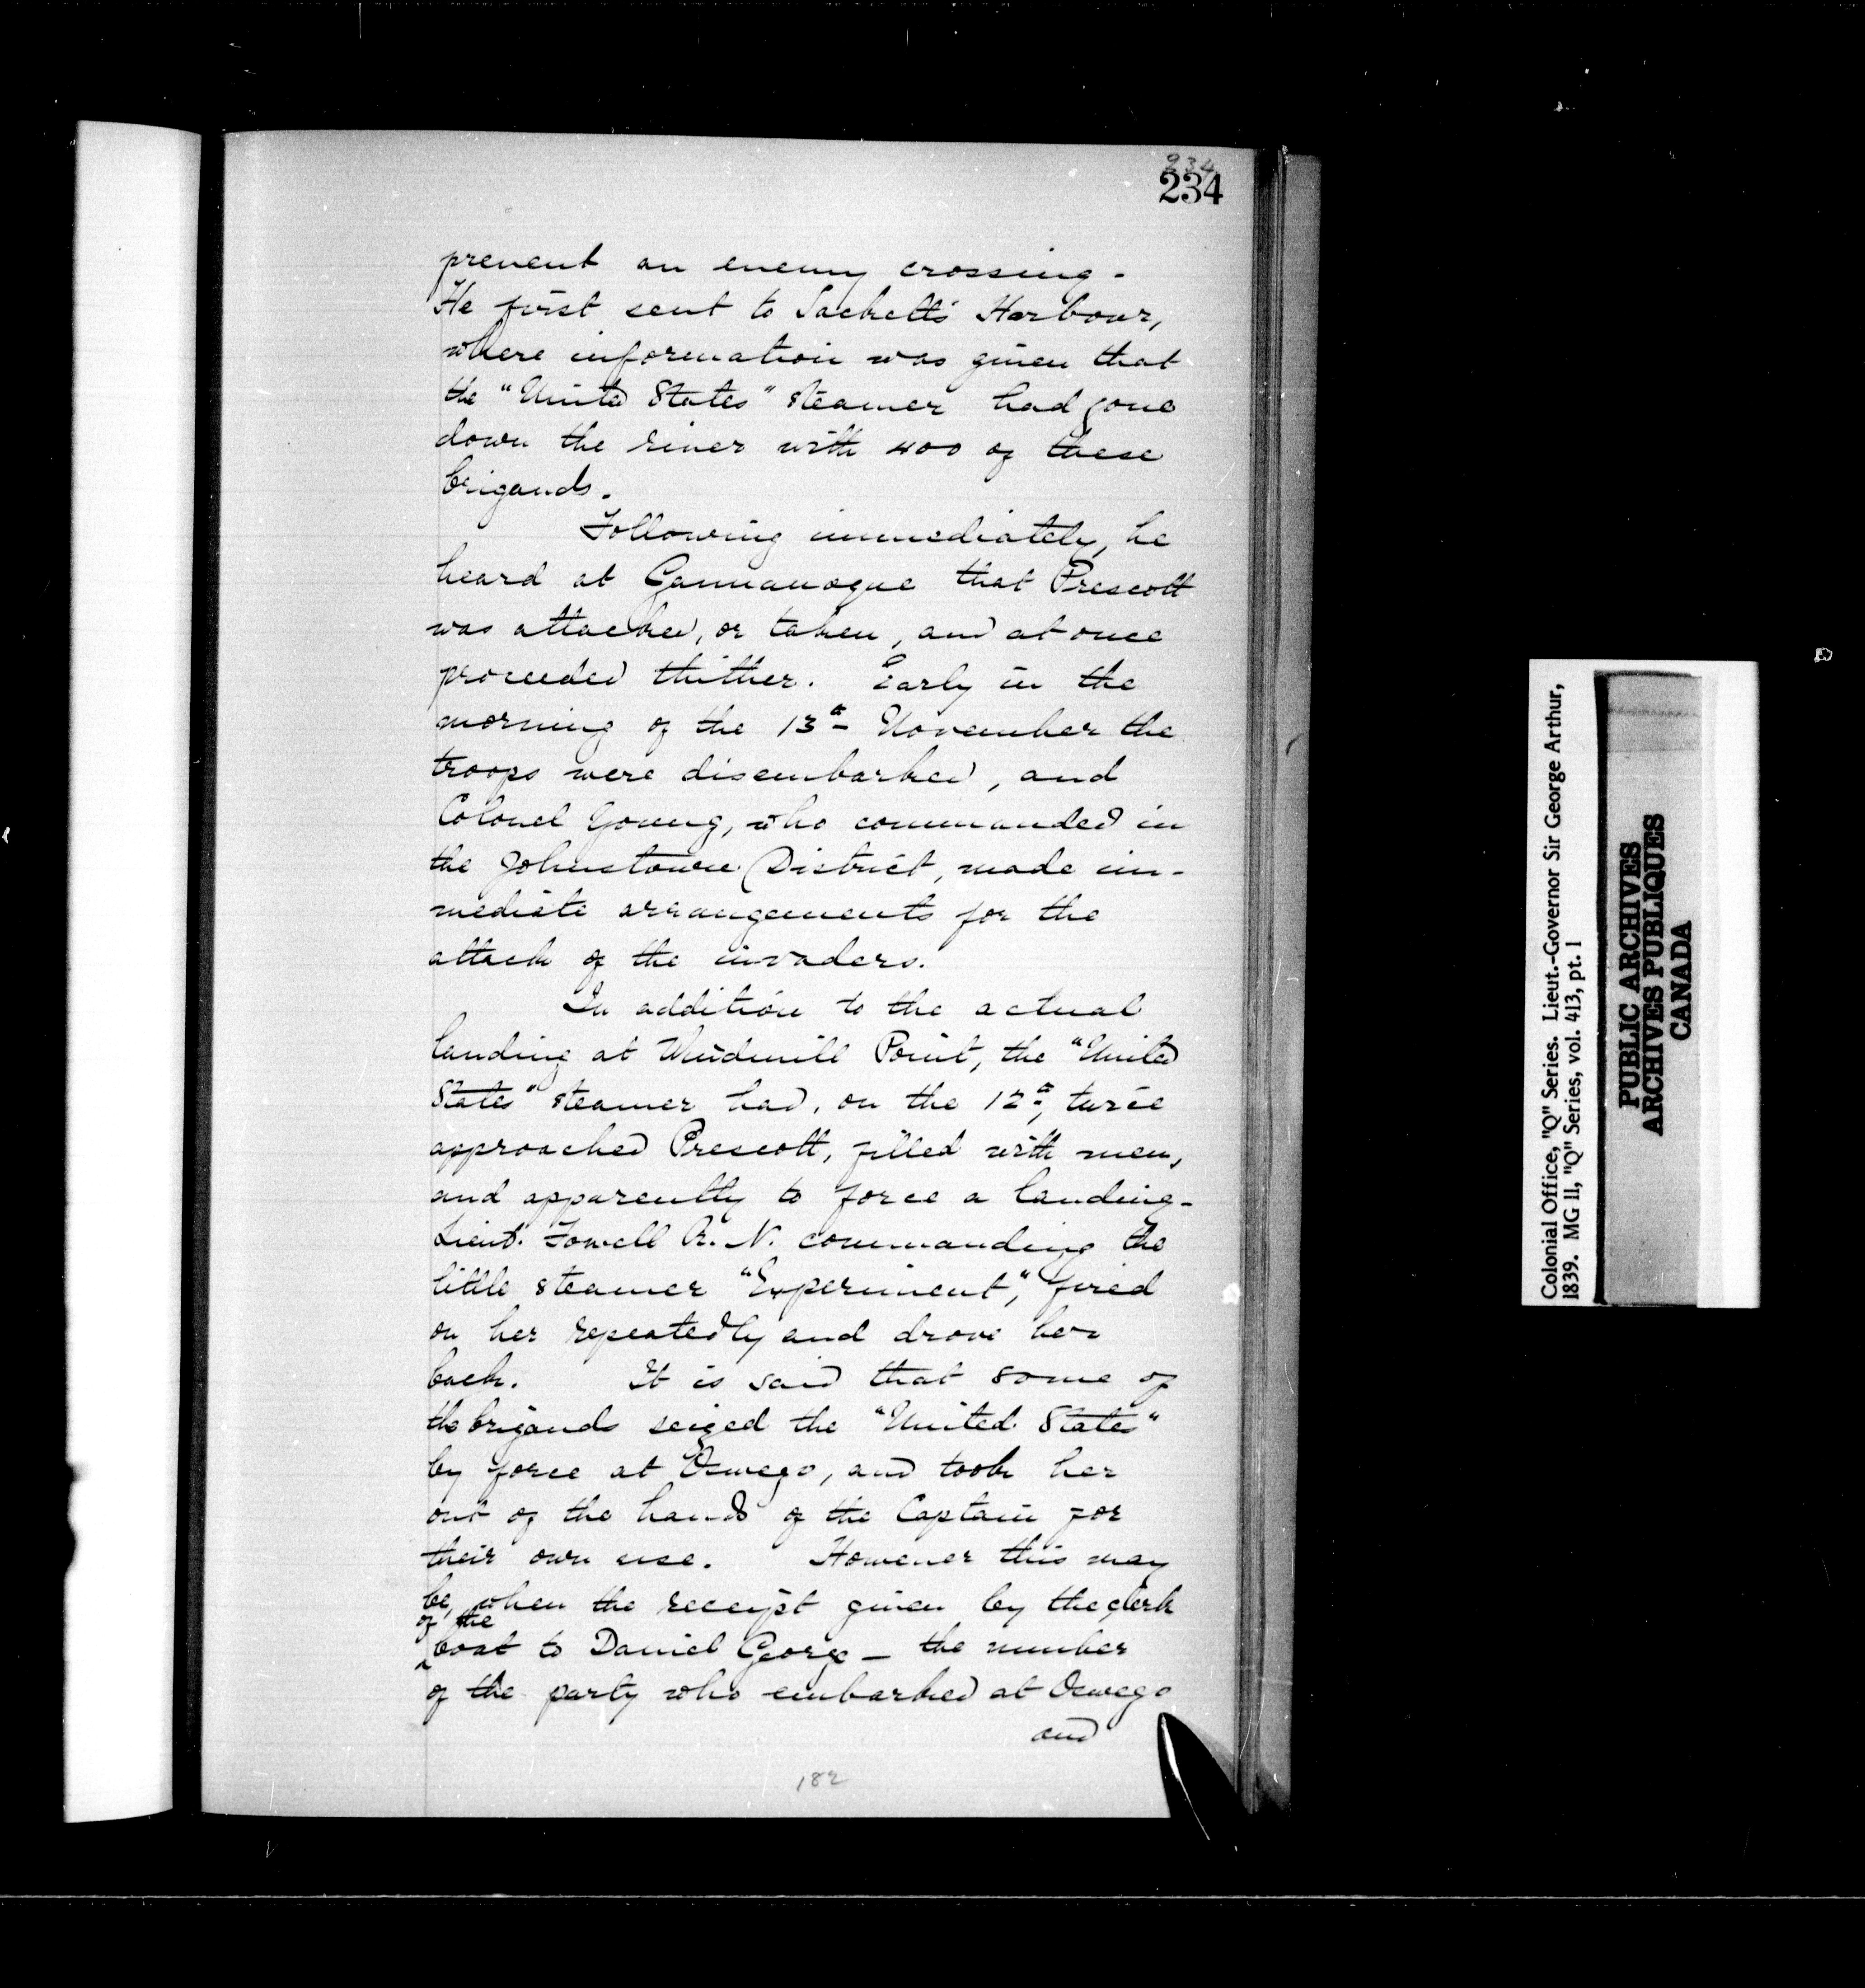 234
234
prevent an enemy crossing -
He first sent to Sackett's Harbour,
where information was given that
the "United States" steamer had gone
down the river with 400 of these
brigands.
Following immediately, he
heard at Gannanoque that Prescott
was attacked, or taken, and at once
proceeded thither. Early in the
morning of the 13th November the
troops were disembarked, and
Colonel Young, who commanded in
the Johnstown District, made im-
mediate arrangements for the
attack of the invaders.
In addition to the actual
landing at Windmill Point, the "United
States" steamer had, on the 12th, twice
approached Prescott, filled with men,
and apparently to force a landing -
Lieut. Fowell R. N. commanding the
little steamer "Experiment", fired
on her repeatedly and drove her
back. It is said that some of
the brigands seized the "United States"
by force at Oswego, and took her
out of the hands of the Captain for
their own use. However this may
be, when the receipt given by the clerk
of the
boat to Daniel George - the number
of the party who embarked at Oswego
and
182
Colonial Office, "Q" Series. Lieut.-Governor Sir George Arthur,
1839. MG 11, "Q" Series, vol. 413, pt. 1
PUBLIC ARCHIVES
ARCHIVES PUBLIQUES
CANADA